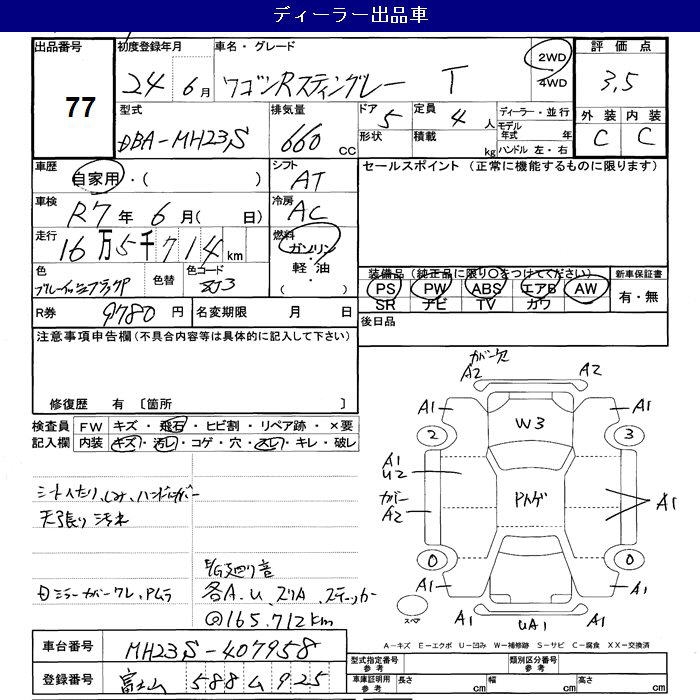 ディーラー出品車
出品番号 77
初度登録年月 24年 6月
車名・グレード ワゴンRスティングレー T
2WD
4WD
評価点 3.5
外装 内装
C C
型式 DBA-MH23S
排気量 660 cc
ドア 5
形状
定員 4 人
積載 kg
ディーラー・並行
モデル年式 年
ハンドル 左・右
車歴 自家用・( )
シフト AT
セールスポイント (正常に機能するものに限ります)
車検 R7年 6月( 日)
冷房 AC
走行 16万5千714km
燃料 ガソリン・軽油・( )
色
色替
色コード ZJ3
装備品(純正品に限り○をつけてください)
PS PW ABS エアB AW
SR ナビ TV カワ
新車保証書
有・無
R券 9780円
名変期限 月 日
後日品
注意事項申告欄(不具合内容等は具体的に記入して下さい)
修復歴 有 [箇所 ]
検査員記入欄
FW キズ・飛石・ヒビ割・リペア跡・×要
内装 キズ・汚レ・コゲ・穴・スレ・キレ・破レ
シートヘたり、しみ、ハンドルカバー
天張り汚れ
E/G廻り音
各A.U、スリA、ステッカー
@165.712km
カバー欠
A2 A2
A1 A1
W3
2 3
A1
U2
カバー
A2
A1
0 0
A1 A1
スペア
A1 UA1 A1
A-キズ E-エクボ U-凹み W-補修跡 S-サビ C-腐食 XX-交換済
車台番号 MH23S-407958
登録番号 富士山 588 ム 925
型式指定番号 参考
類別区分番号 参考
車庫証明用 参考 長さ cm 幅 cm 高さ cm